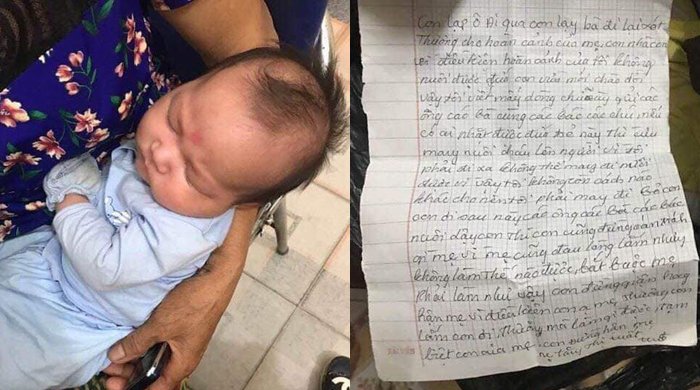 Con lạp ô Ai qua con lạy bà đi lại xót
Thương cho hoàn cảnh của mẹ con nhà con
vì điều kiện hoàn cảnh của tôi không
nuôi được đứa con vừa mới chào đời
vậy tôi viết mấy dòng chữ này gửi các
ông các bà cùng các bác các chú nếu
có ai nhặt được đứa trẻ này thì cưu
mang nuôi cháu lên người vì tôi
phải đi xa không thể mang đi nuôi
được vì vậy tôi không còn cách nào
khác cho nên tôi phải mang đi bỏ con
con đi sau này các ông các bà các bác
nuôi dạy con thì con cũng đừng oan trách
gì mẹ vì mẹ cũng đau lòng lắm nhưng
không làm thế nào được bắt buộc mẹ
phải làm như vậy con đừng giận hờn
hận mẹ vì điều kiện con ạ mẹ thương con
lắm con ơi thương mà làm gì được tạm
biệt con của mẹ con đừng hận mẹ